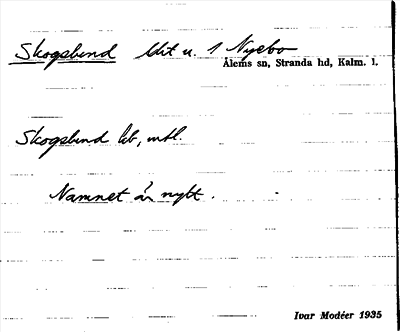 Skogslund lht u. 1 Nyebo
Ålems sn, Stranda hd, Kalm. l.
Skogslund lht, mtl.
Namnet är nytt.
Ivar Modéer 1935